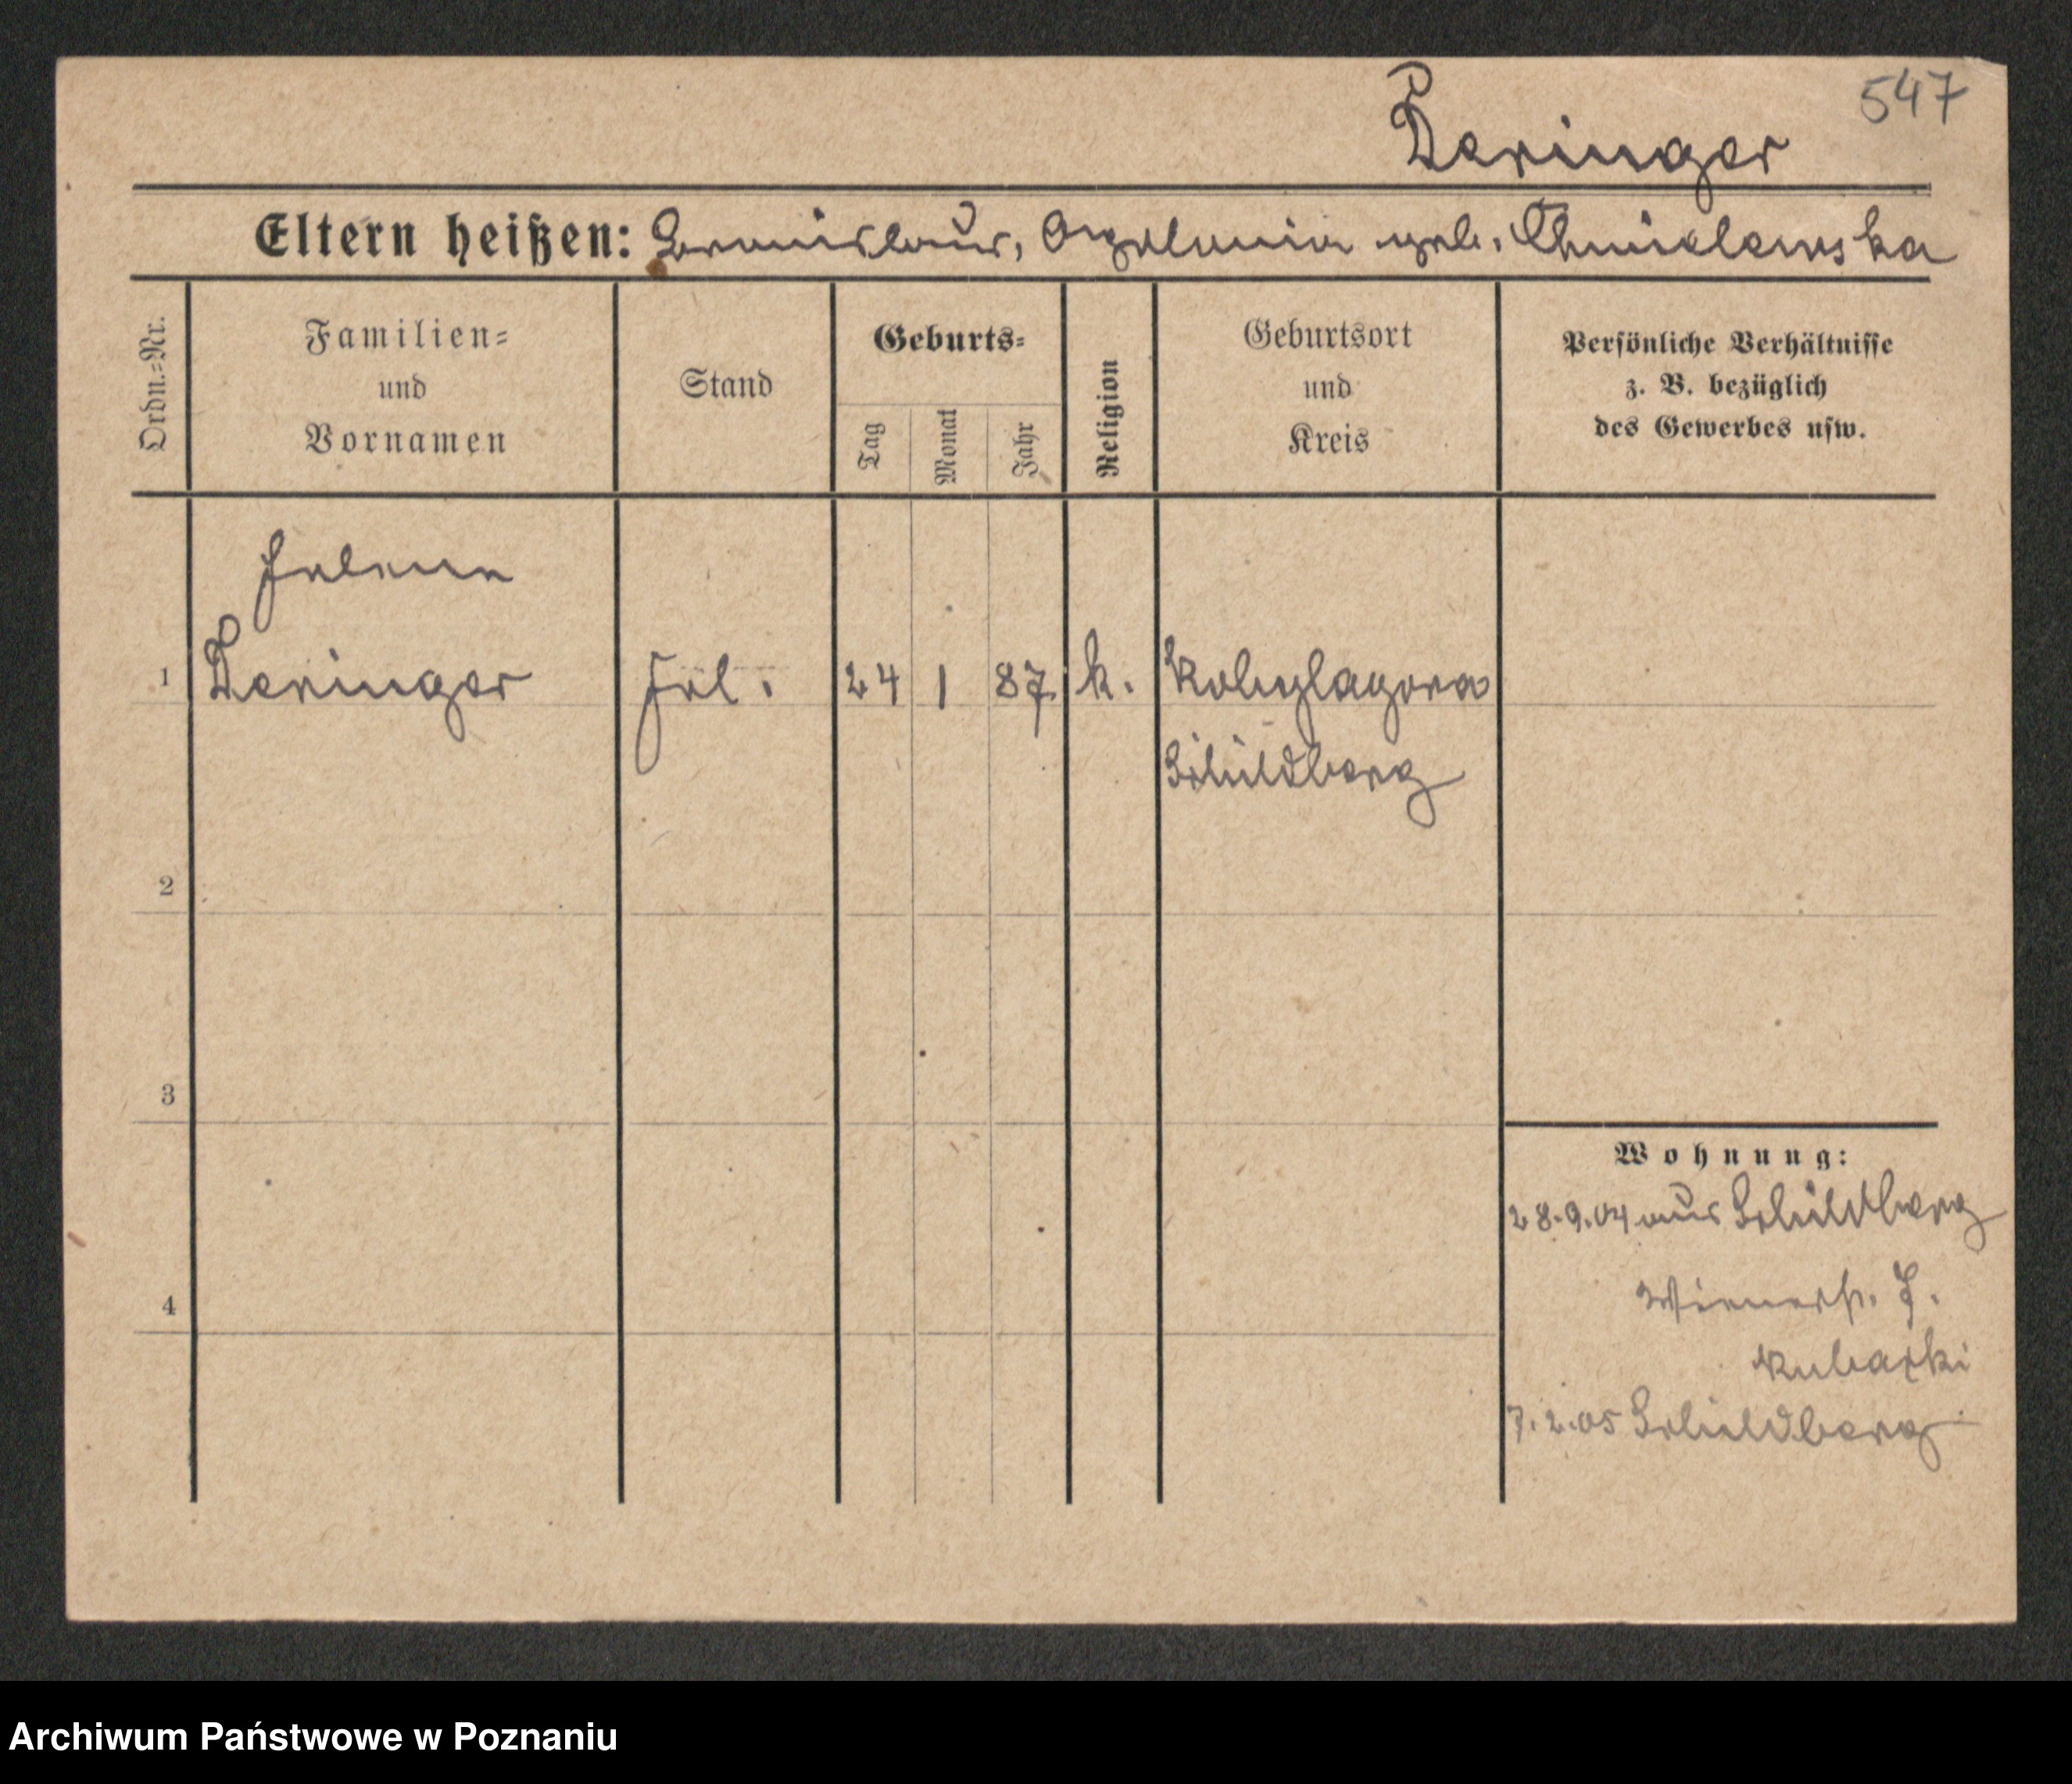 547
Deringer
Eltern heißen: Bronislaus, Apolonia geb. Chmielewska
Ordn.=Nr.
Familien=
und
Vornamen
Stand
Geburts=
Tag
Monat
Jahr
Religion
Geburtsort
und
Kreis
Persönliche Verhältnisse
z. B. bezüglich
des Gewerbes usw.
Helena
1 Deringer Frl. 24 1 87 k. Kobylagora
Schildberg
2
3
4
Wohnung:
28.9.04 aus Schildberg
Wienerstr. 7.
7.2.05 Schildberg
Archiwum Państwowe w Poznaniu